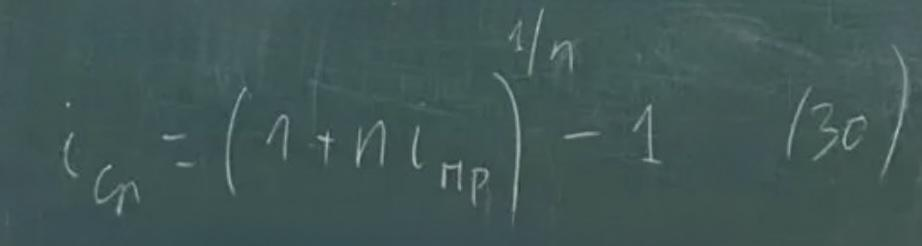 i_сл = (1 + n i_пр)^1/n - 1 (30)